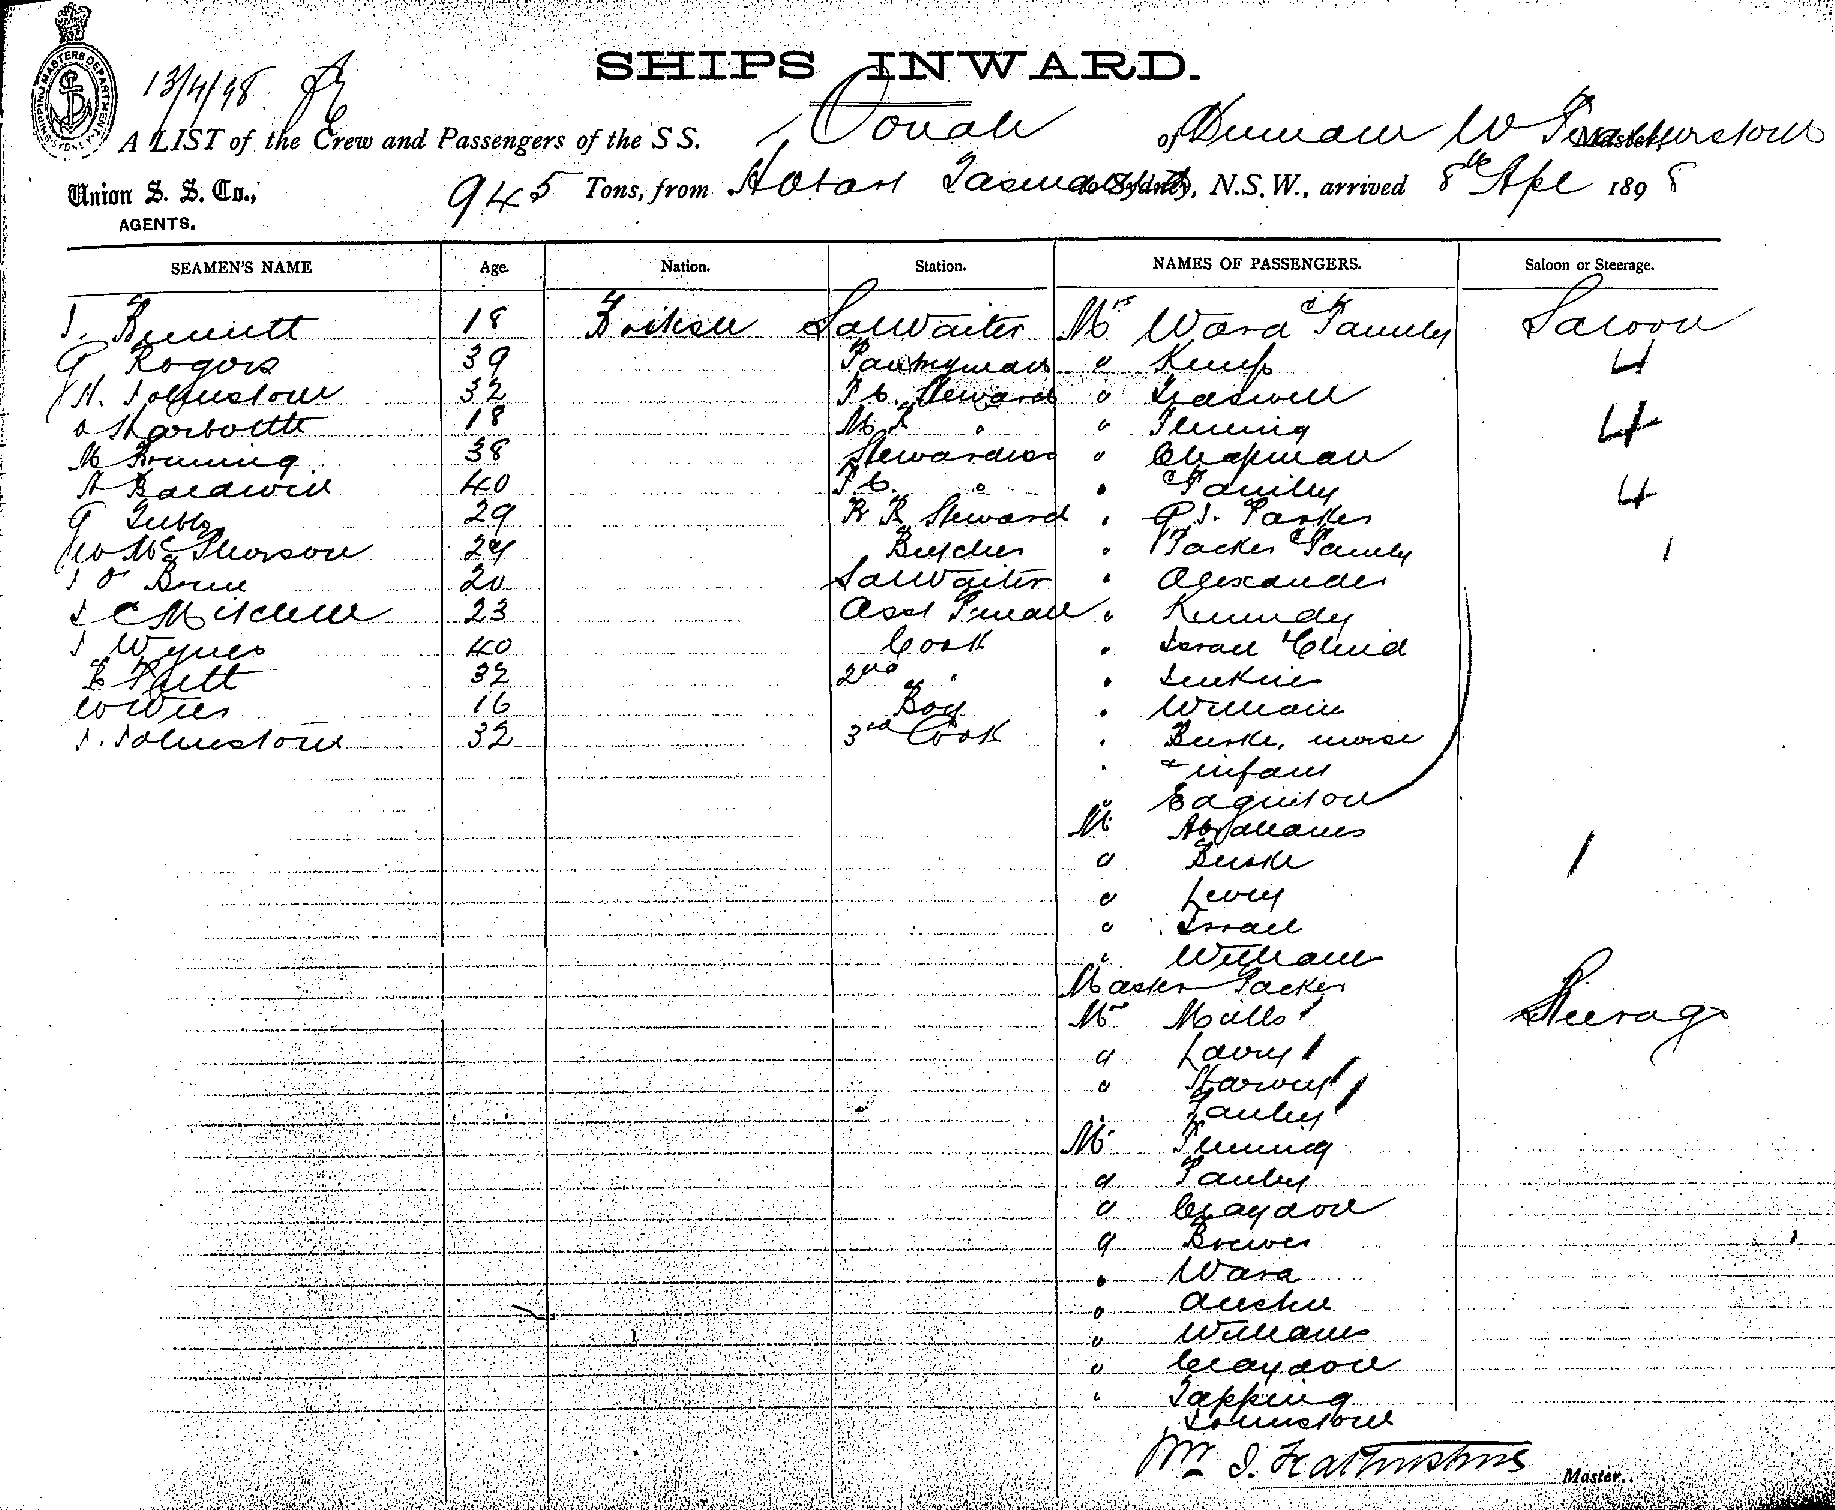 SHIPS INWARD.
13/4/98
A LIST of the Crew and Passengers of the S S. Oonah of W Featherstone Master,
Union S. S. Co.,
AGENTS.
945 Tons, from Hobart Tasmania to Sydney, N.S.W., arrived 8th Apl 1898
SEAMEN'S NAME Age. Nation. Station. NAMES OF PASSENGERS. Saloon or Steerage.
J. Bennett 18 British SalWaiter Mrs Ward & Family Saloon
G Rogers 39 Pantryman " Kemp 4
H. Johnstone 32 F C. Steward "
18 " " Fleming 4
M 38 Stewardess " Chapman
A Baldwin 40 F C. " " & Family 4
G Tubbs 29 Steward " G J. Parker
Geo McPherson 29 Butcher " Packer & Family 1
J O Brien 20 SalWaiter " Alexander
J C Mitchell 23 Asst " Kennedy
J Wynes 40 Cook " Israel & Child
32 2nd " " Jenkins
16 Boy " William
J. Johnstone 32 3rd Cook " Burke, nurse
" & infant
" Edginton
M Abrahams
" Burke 1
" Levy
" Israel
" William
Master Packer
Mr Mills Steerage
" Lavey
"
"
M Fleming
"
" Claydon
" Brewer
" Ward
" Austin
" Williams
" Claydon
" Tapping
Johnstone
Wm J. Featherstone Master.